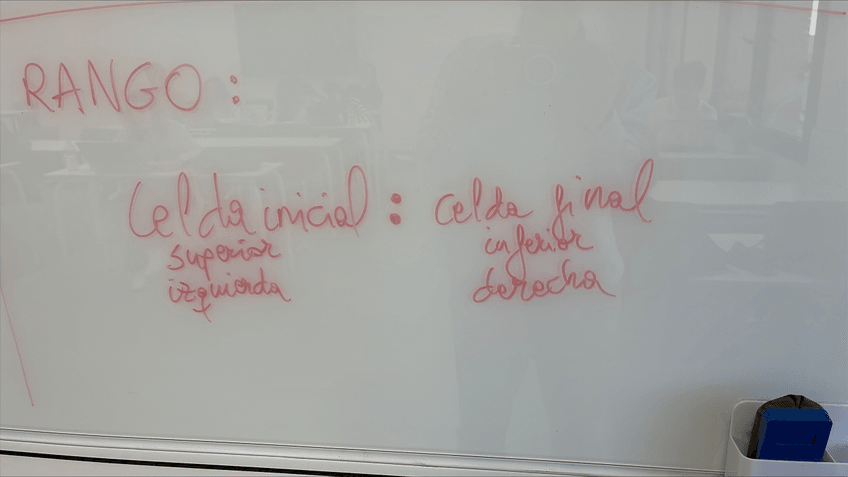 RANGO:
Celda inicial : celda final
superior inferior
izquierda derecha